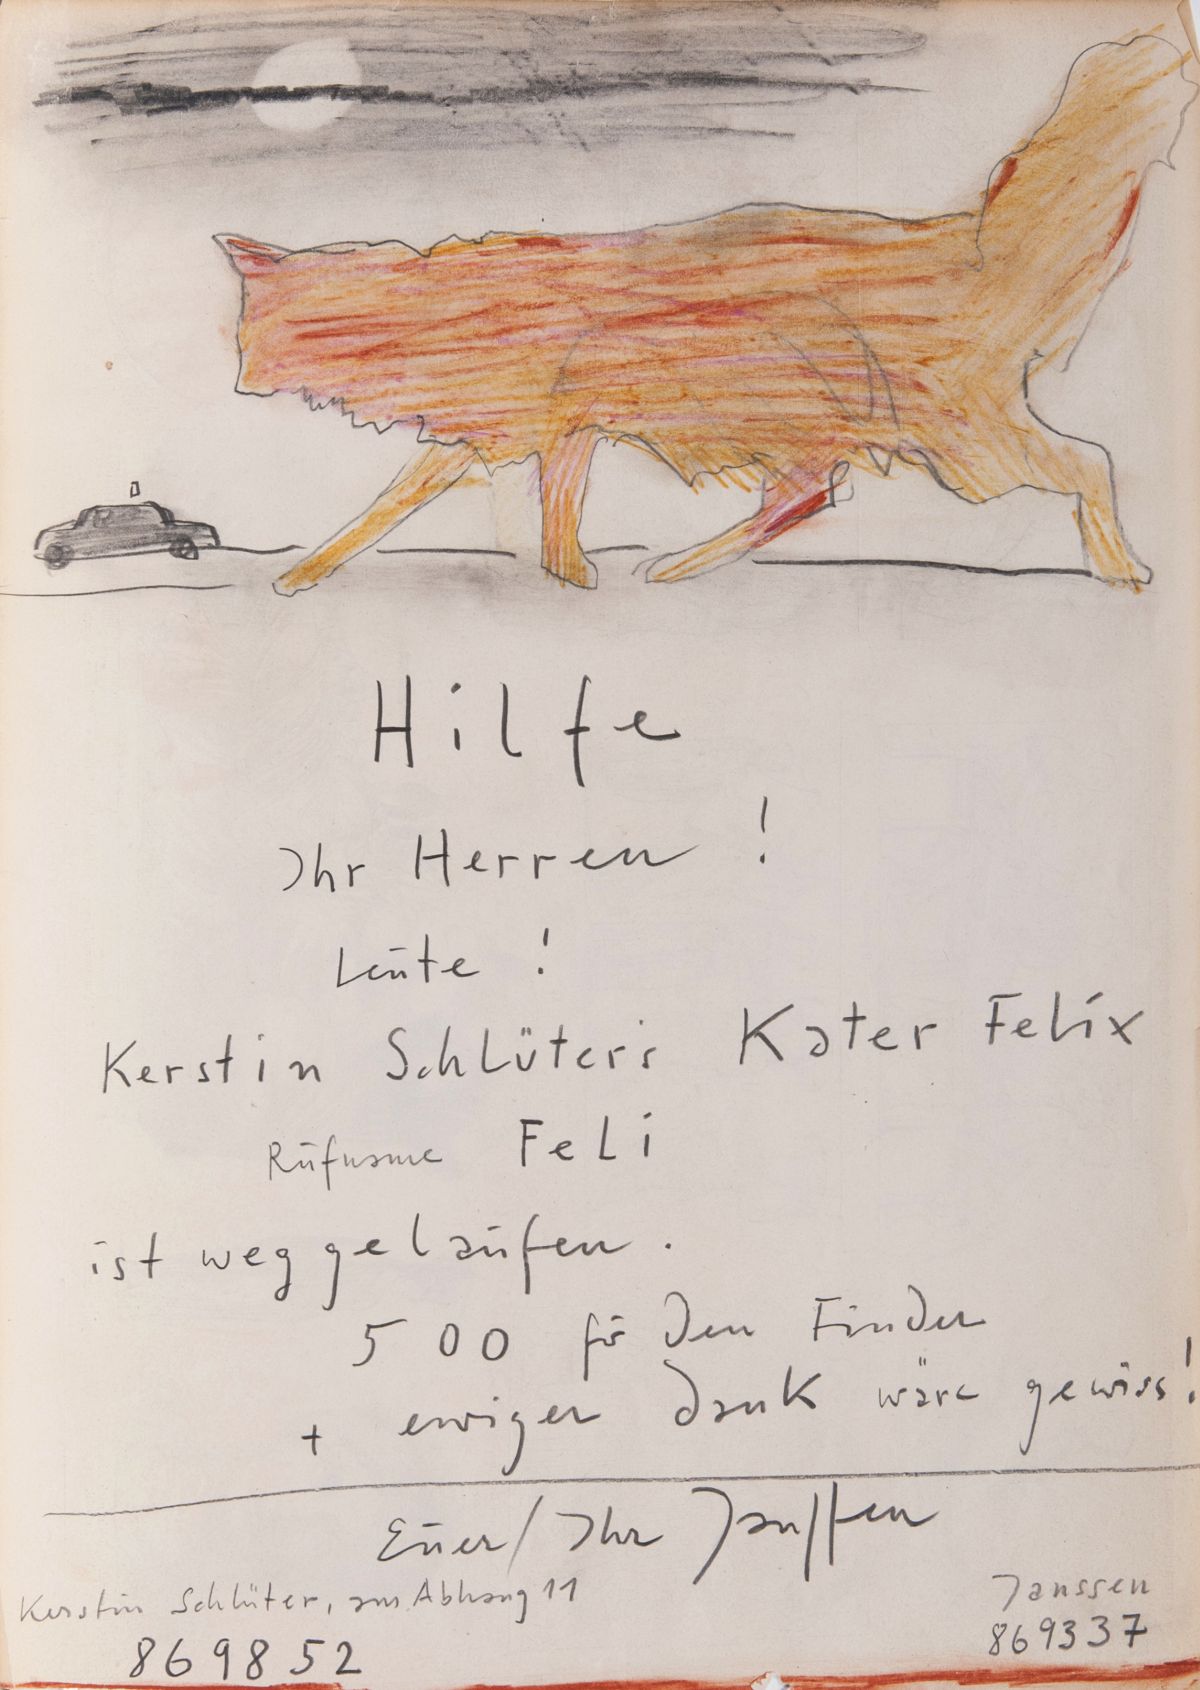 Hilfe
Ihr Herren !
Leute !
Kerstin Schlüters Kater Felix
Rufname Feli
ist weggelaufen .
500 fö den Finder
+ ewiger Dank wäre gewiss !
Euer / Ihr Janssen
Kerstin Schlüter, am Abhang 11
869852
Janssen
869337